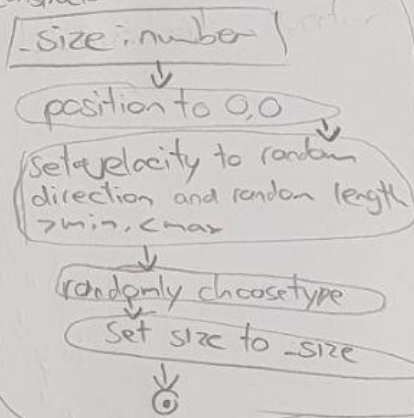 _size: number
position to 0,0
set velocity to random
direction and random length
>min, <max
randomly choose type
set size to _size